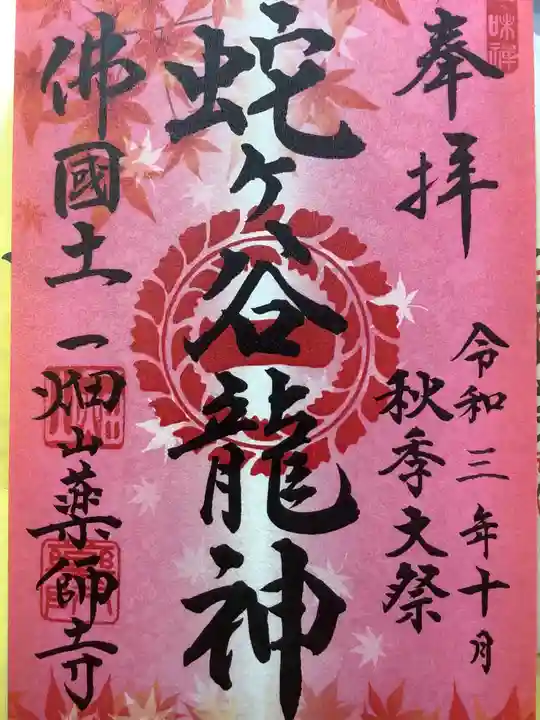 奉拝
令和三年十月
秋季大祭
蛇ヶ谷龍神
佛國土
一畑山薬師寺